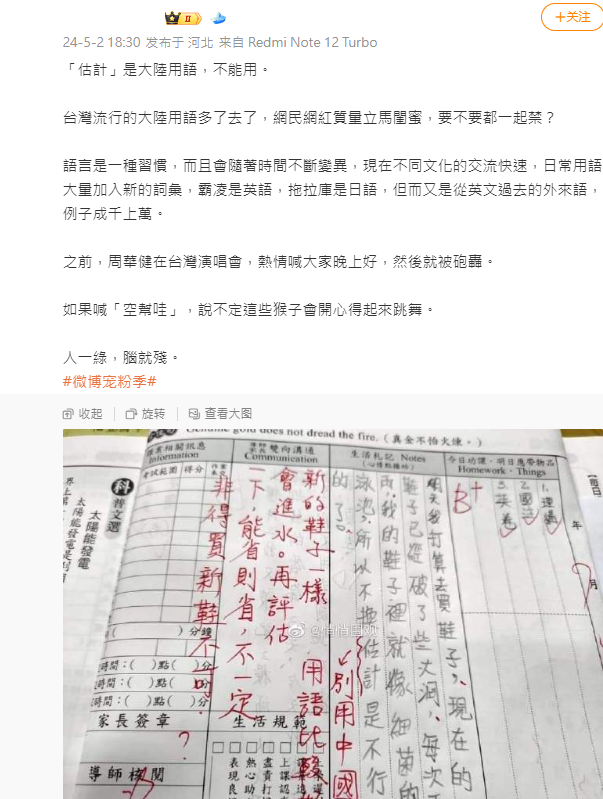 II
+关注
24-5-2 18:30 发布于 河北 来自 Redmi Note 12 Turbo
「估計」是大陸用語，不能用。
台灣流行的大陸用語多了去了，網民網紅質量立馬閨蜜，要不要都一起禁？
語言是一種習慣，而且會隨著時間不斷變異，現在不同文化的交流快速，日常用語
大量加入新的詞彙，霸凌是英語，拖拉庫是日語，但而又是從英文過去的外來語，
例子成千上萬。
之前，周華健在台灣演唱會，熱情喊大家晚上好，然後就被砲轟。
如果喊「空幫哇」，說不定這些猴子會開心得起來跳舞。
人一綠，腦就殘。
#微博宠粉季#
收起
旋转
查看大图
gold does not dread the fire.（真金不怕火煉。）
今日功課、明日應帶物品
Homework、Things
1.
2.國
3.英卷
B+
年
月
生活札記 Notes
（心情點播站）
明天我打算去買鞋子，現在的
鞋子已經破了些大洞，每次下
雨我的鞋子裡就像細菌的
泳池，所以不換估計是不行
的了。
↙別用中國
雙向溝通
Communication
新的鞋子一樣
用語比較
會進水。再評估
一下，能省則省，不一定
非得買新鞋不可。
Information
考試範圍
得分
）分鐘
時間：（ ）點（ ）分
時間：（ ）點（ ）分
時間：（ ）點（ ）分
家長簽章
?
導師核閱
生活規範
上課認
盡責打
熱心助
表現良
科
普文選
太陽能發電
太陽能發電是
【每日
@悄悄围观